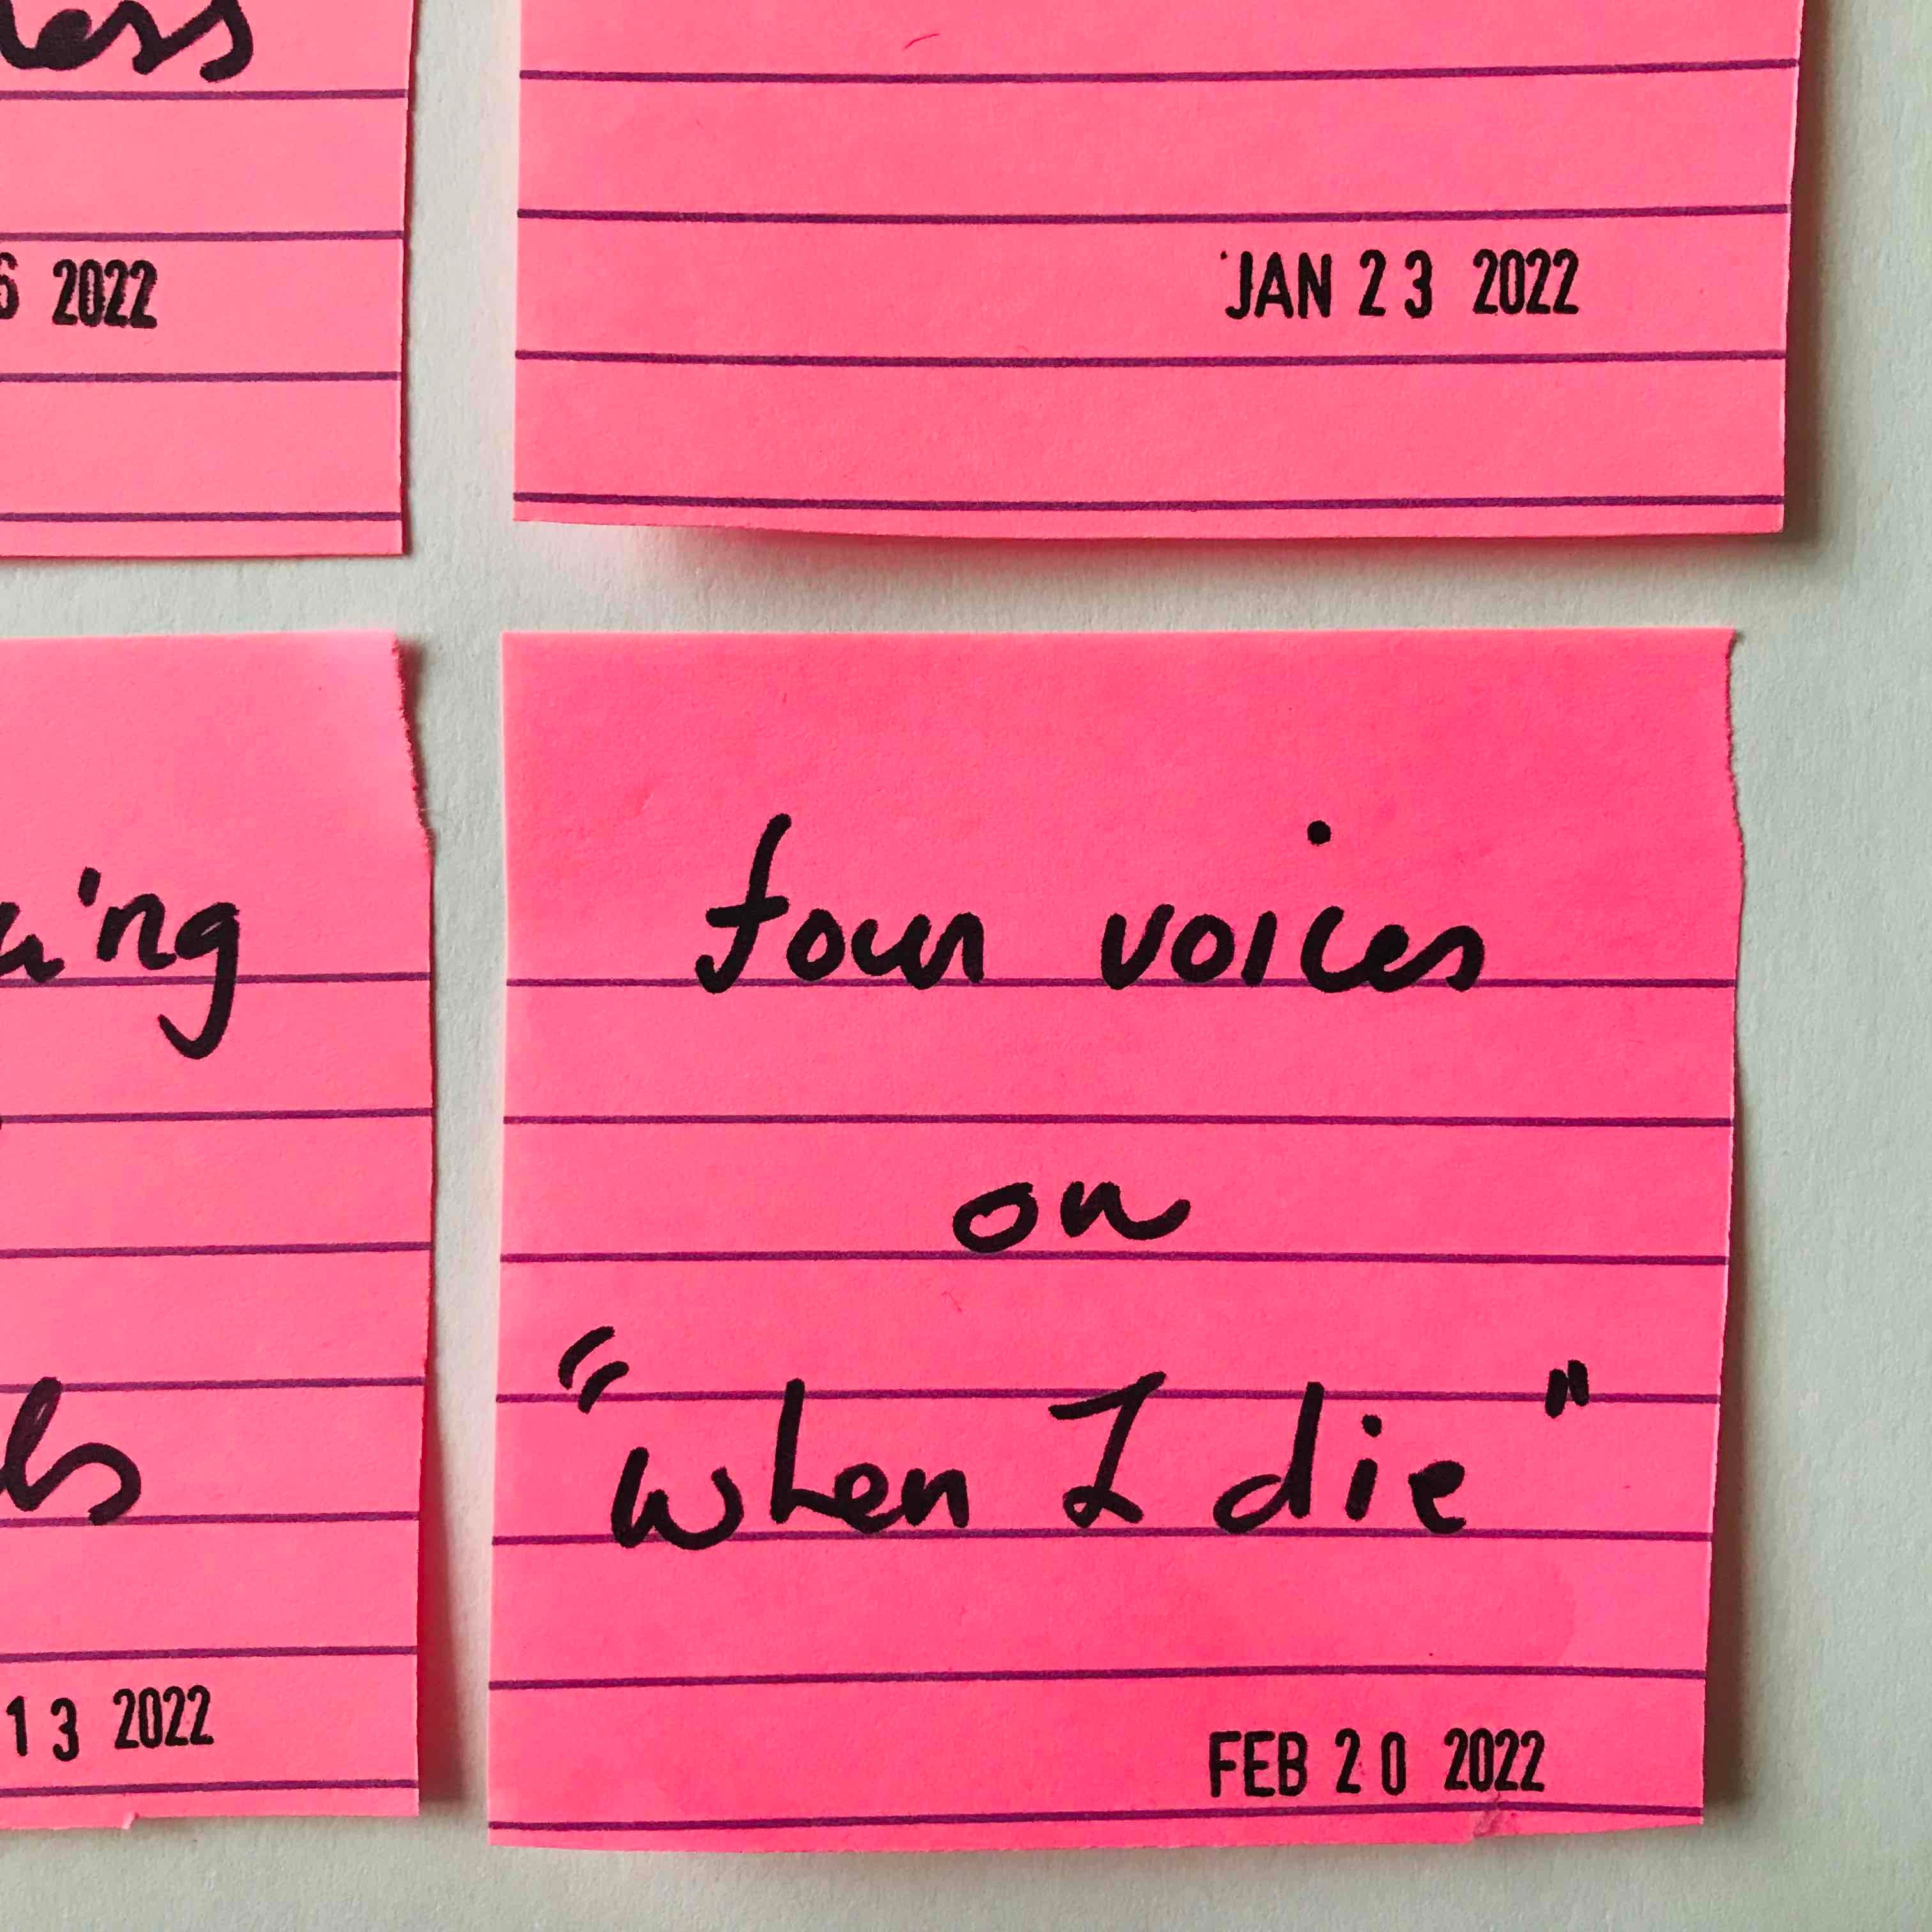 ess
6 2022
JAN 23 2022
ing
13 2022
four voices
on
"when I die"
FEB 20 2022